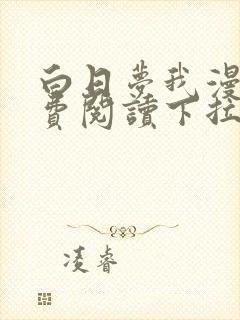 白日夢我漫
費閱讀下拉
凌睿